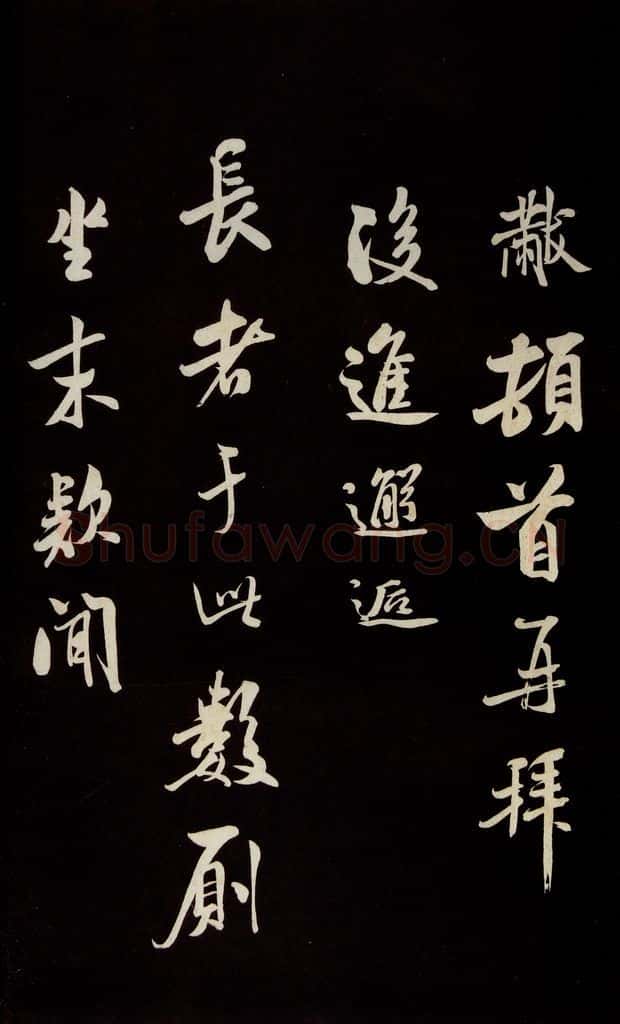 黻頓首再拜
後進邂逅
長者于此數厠
坐末款聞
shufawang.cn